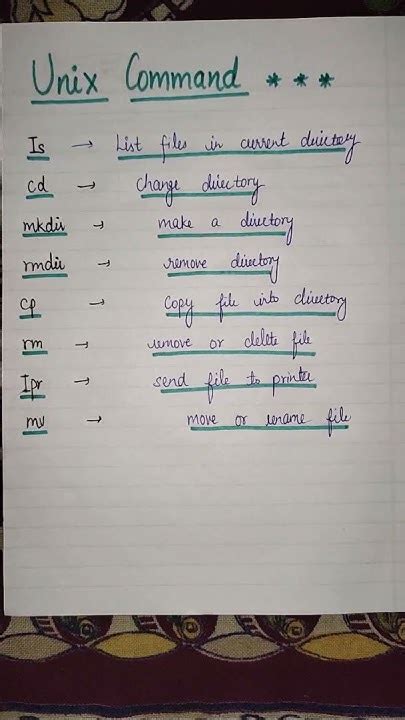 Unix Command ***
Is → List files in current directory
cd → change directory
mkdir → make a directory
rmdir → remove directory
cp → copy file into directory
rm → remove or delete file
Ipr → send file to printer
mv → move or rename file